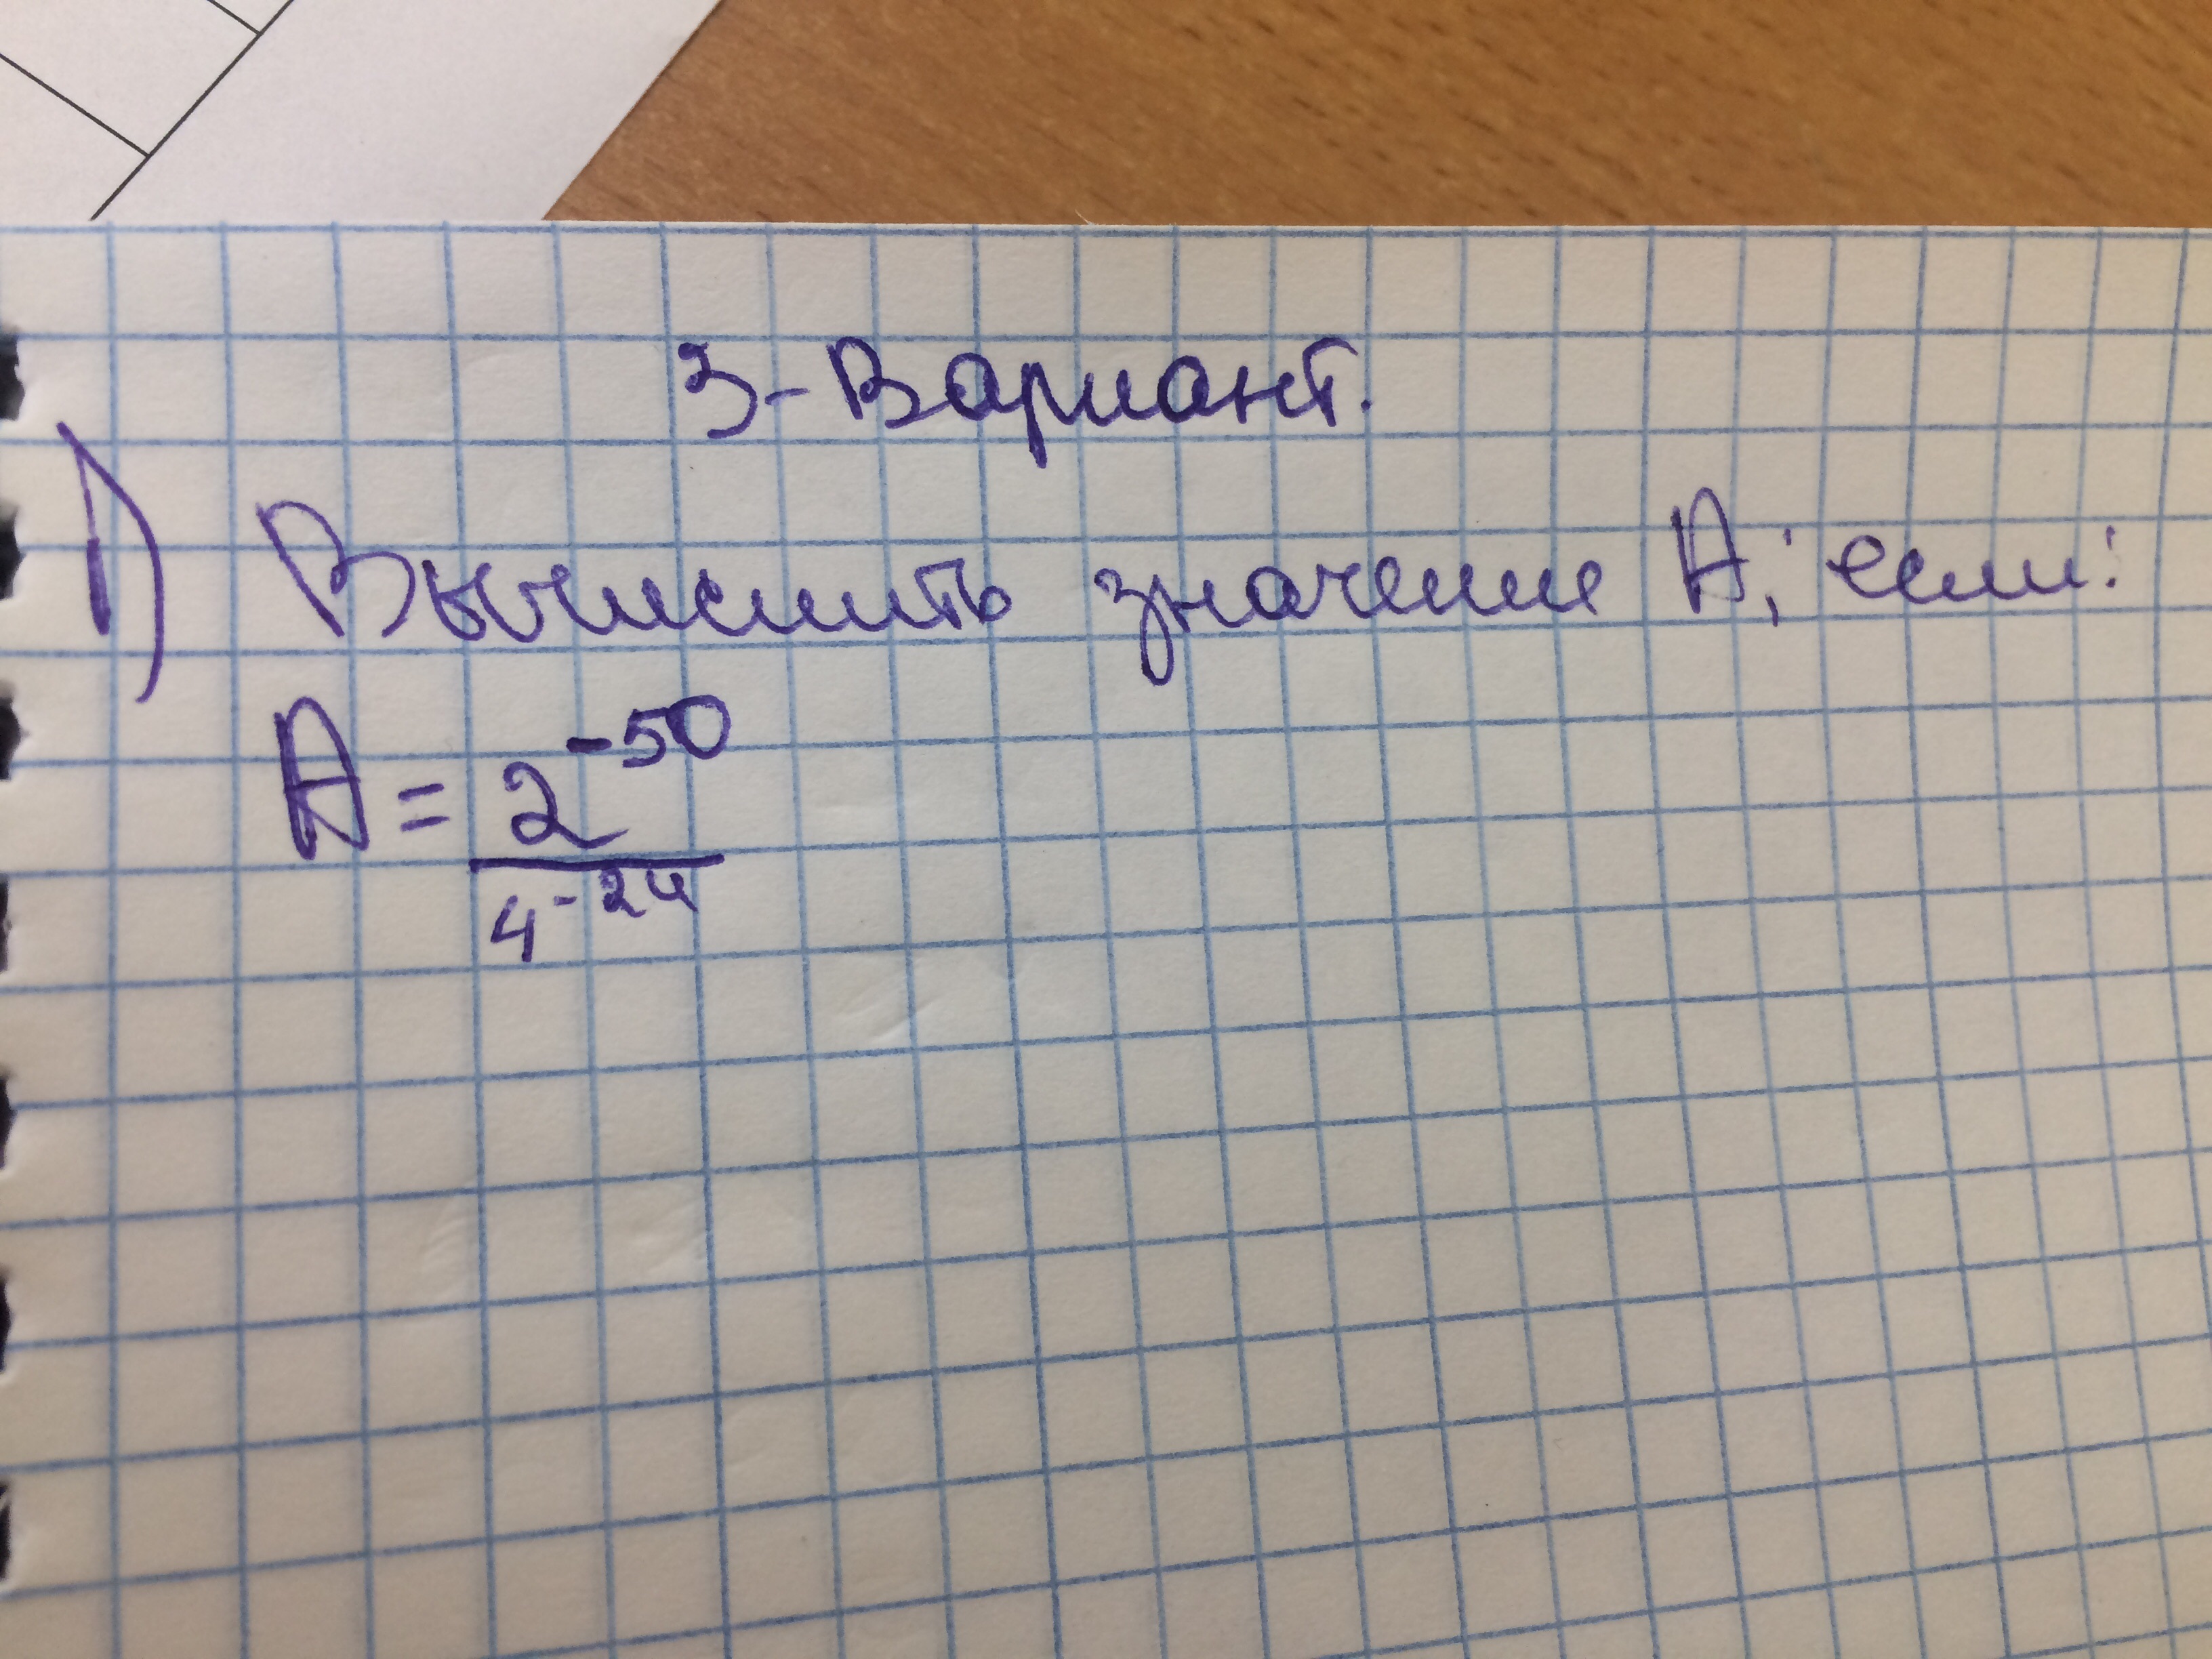 3-Вариант.
1) Вычислить значение А, если:
A = 2^-50
4^-24